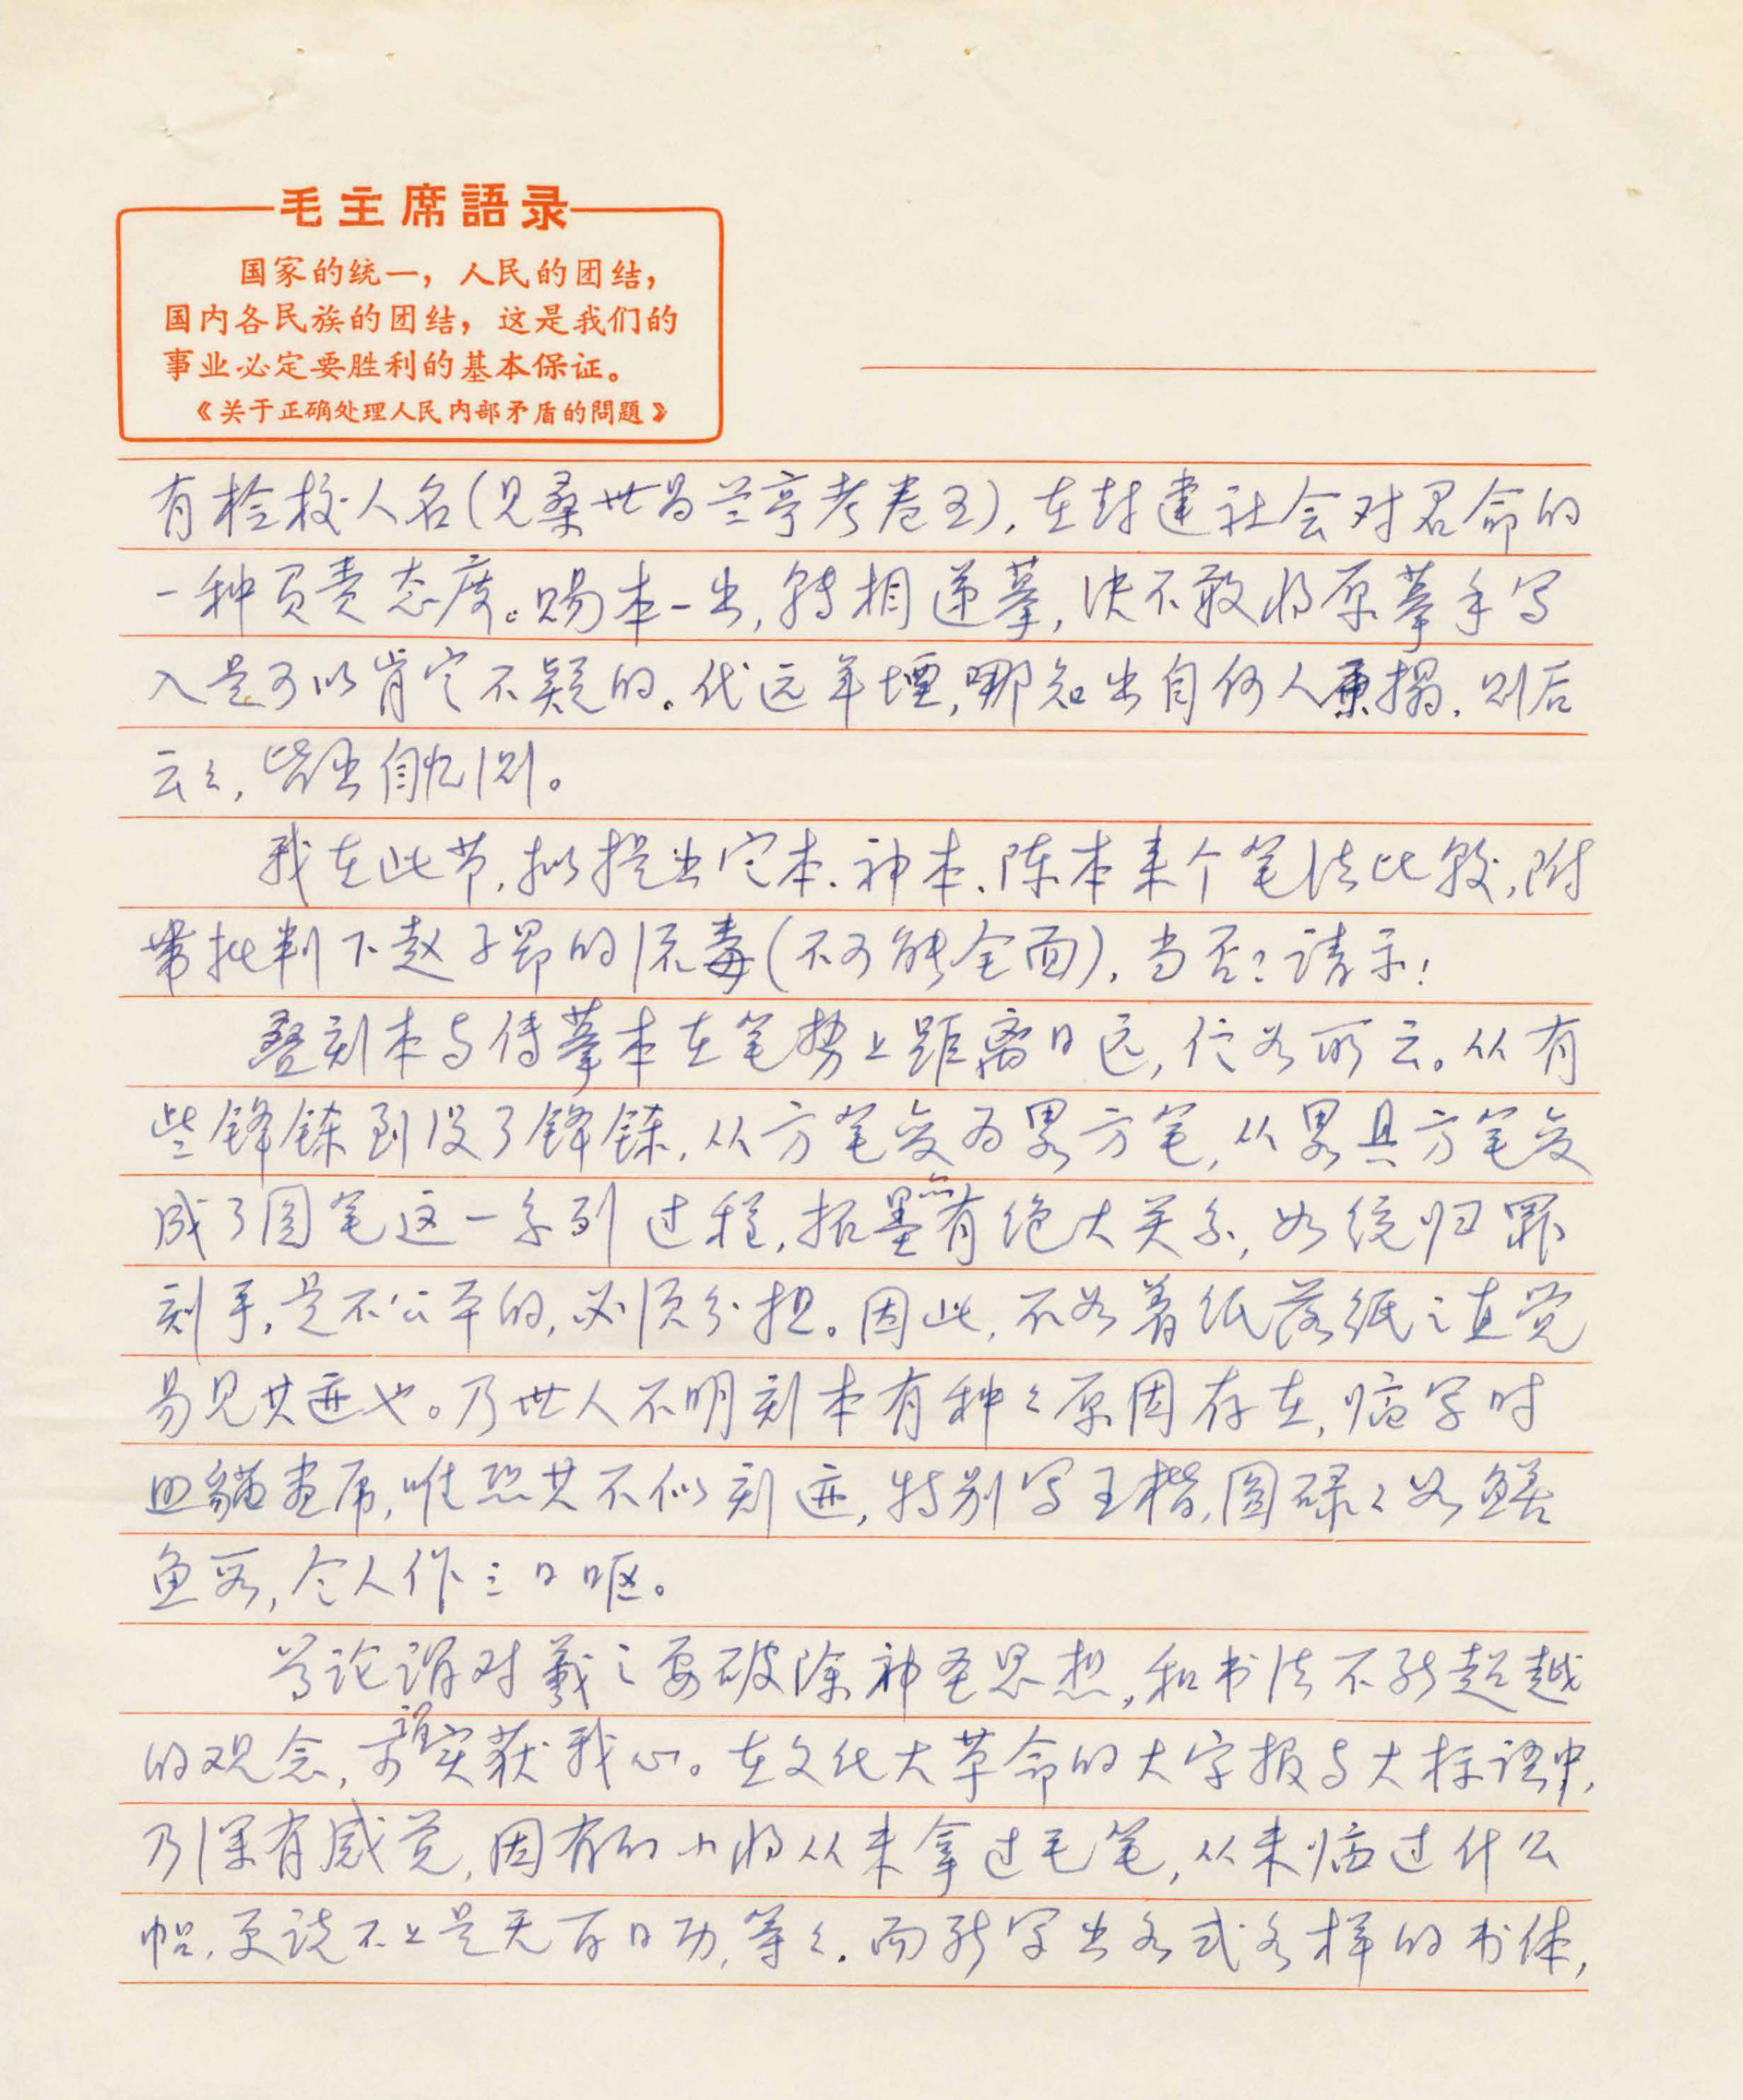 毛主席語录
国家的统一，人民的团结，
国内各民族的团结，这是我们的
事业必定要胜利的基本保证。
《关于正确处理人民内部矛盾的問題》
有检校人名(见桑世昌兰亭考卷五)，在封建社会对君命的
一种负责态度。赐本一出，转相递摹，决不敢将原摹手写
入是可以肯定不疑的。代远年堙，哪知出自何人廉搨，则后
云々，皆出自忆测。
我在此节，拟提出定本、神本、陈本来个笔法比较，附
带批判下赵子昂的流毒(不可能全面)，当否？请示！
叠刻本与传摹本在笔势上距离日远，信如所云。从有
些锋铩到没了锋铩，从方笔变为略方笔，从略具方笔变
成了圆笔这一系列过程，拓墨亦有绝大关系，如统归罪
刻手，是不公平的，必须分担。因此，不如着纸落纸之直觉
易见其迹也。乃世人不明刻本有种々原因存在，临写时
照猫画虎，唯恐其不似刻迹，特别写王楷，圆碌々如鳝
鱼段，令人作三日呕。
尊论谓对羲之要破除神圣思想，和书法不能超越
的观念，可谓实获我心。在文化大革命的大字报与大标语中，
乃深有感觉，因有的小将从未拿过毛笔，从未临过什么
帖，更谈不上是无百日功，等々，而能写出各式各样的书体，